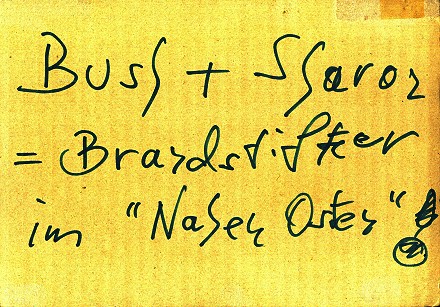 Bush + Sharon
= Brandstifter
im "Nahen Osten" !